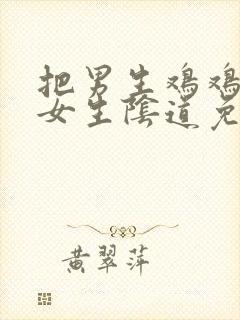 把男生鸡鸡
女生陰道免
黄翠萍